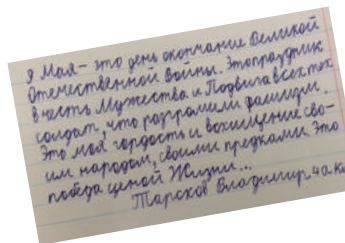 9 Мая - это день окончание Великой
Отечественной Войны. Этопраздник
в честь Мужества и Подвига всех тех
солдат, что разгромили фашизм.
Это моя гордость и восхищение сво-
им народом, своими предками. Это
победа ценой Жизни...
Тарсков Владимир 4а кл